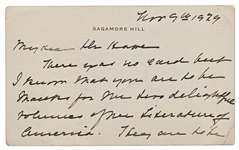 SAGAMORE HILL
Nov 9th 1929
My dear Mr
There was no card but
I know that you are to be
thanked for the two delightful
volumes of the Literature of
America. They are to be